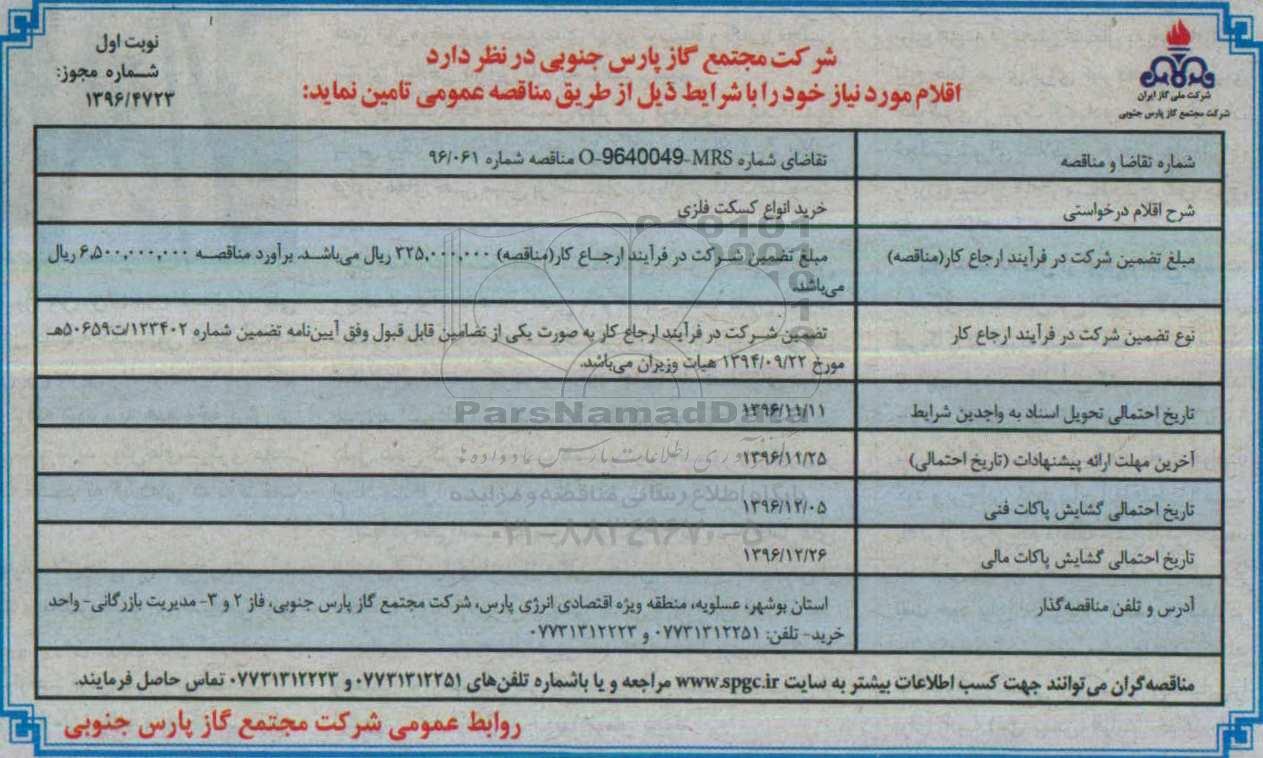 نوبت اول
شماره مجوز:
۱۳۹۶/۴۷۲۳
شرکت ملی گاز ایران
شرکت مجتمع گاز پارس جنوبی
شرکت مجتمع گاز پارس جنوبی در نظر دارد
اقلام مورد نیاز خود را با شرایط ذیل از طریق مناقصه عمومی تامین نماید:
شماره تقاضا و مناقصه
تقاضای شماره O-9640049-MRS مناقصه شماره ۹۶/۰۶۱
شرح اقلام درخواستی
خرید انواع کسکت فلزی
مبلغ تضمین شرکت در فرآیند ارجاع کار(مناقصه)
مبلغ تضمین شرکت در فرآیند ارجاع کار(مناقصه) ۳۲۵,۰۰۰,۰۰۰ ریال می‌باشد. برآورد مناقصه ۶,۵۰۰,۰۰۰,۰۰۰ ریال
می‌باشد.
نوع تضمین شرکت در فرآیند ارجاع کار
تضمین شرکت در فرآیند ارجاع کار به صورت یکی از تضامین قابل قبول وفق آیین‌نامه تضمین شماره ۱۲۳۴۰۲/ت۵۰۶۵۹هـ
مورخ ۱۳۹۴/۰۹/۲۲ هیات وزیران می‌باشد.
تاریخ احتمالی تحویل اسناد به واجدین شرایط
۱۳۹۶/۱۱/۱۱
آخرین مهلت ارائه پیشنهادات (تاریخ احتمالی)
۱۳۹۶/۱۱/۲۵
تاریخ احتمالی گشایش پاکات فنی
۱۳۹۶/۱۲/۰۵
تاریخ احتمالی گشایش پاکات مالی
۱۳۹۶/۱۲/۲۶
آدرس و تلفن مناقصه‌گذار
استان بوشهر، عسلویه، منطقه ویژه اقتصادی انرژی پارس، شرکت مجتمع گاز پارس جنوبی، فاز ۲ و ۳- مدیریت بازرگانی- واحد
خرید- تلفن: ۰۷۷۳۱۳۱۲۲۵۱ و ۰۷۷۳۱۳۱۲۲۲۳
مناقصه‌گران می‌توانند جهت کسب اطلاعات بیشتر به سایت www.spgc.ir مراجعه و یا باشماره تلفن‌های ۰۷۷۳۱۳۱۲۲۵۱ و ۰۷۷۳۱۳۱۲۲۲۳ تماس حاصل فرمایند.
روابط عمومی شرکت مجتمع گاز پارس جنوبی
ParsNamadData
پایگاه اطلاع رسانی مناقصه و مزایده
۰۲۱-۸۸۳۴۹۶۷۰-۵